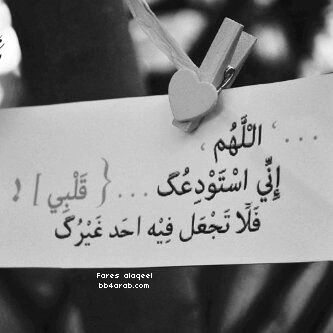 ... ‘ اللَّهُم ‘
إِنِّي اسْتَوْدِعُكَ ... { قَلْبِي ] !
فَلَا تَجْعَل فِيْه احَد غَيْرُكَ
Fares alaqeel
bb4arab.com